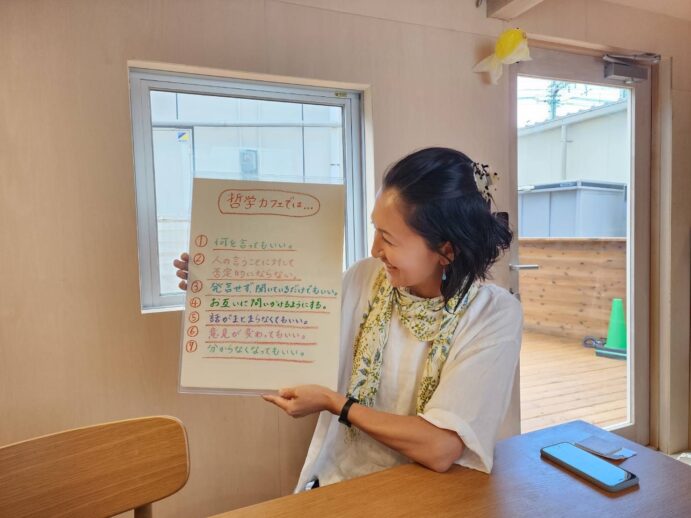 哲学カフェでは…
① 何を言ってもいい。
② 人の言うことに対して
否定的にならない。
③ 発言せず、聞いているだけでもいい。
④ お互いに問いかけるようにする。
⑤ 話がまとまらなくてもいい。
⑥ 意見が変わってもいい。
⑦ 分からなくなってもいい。